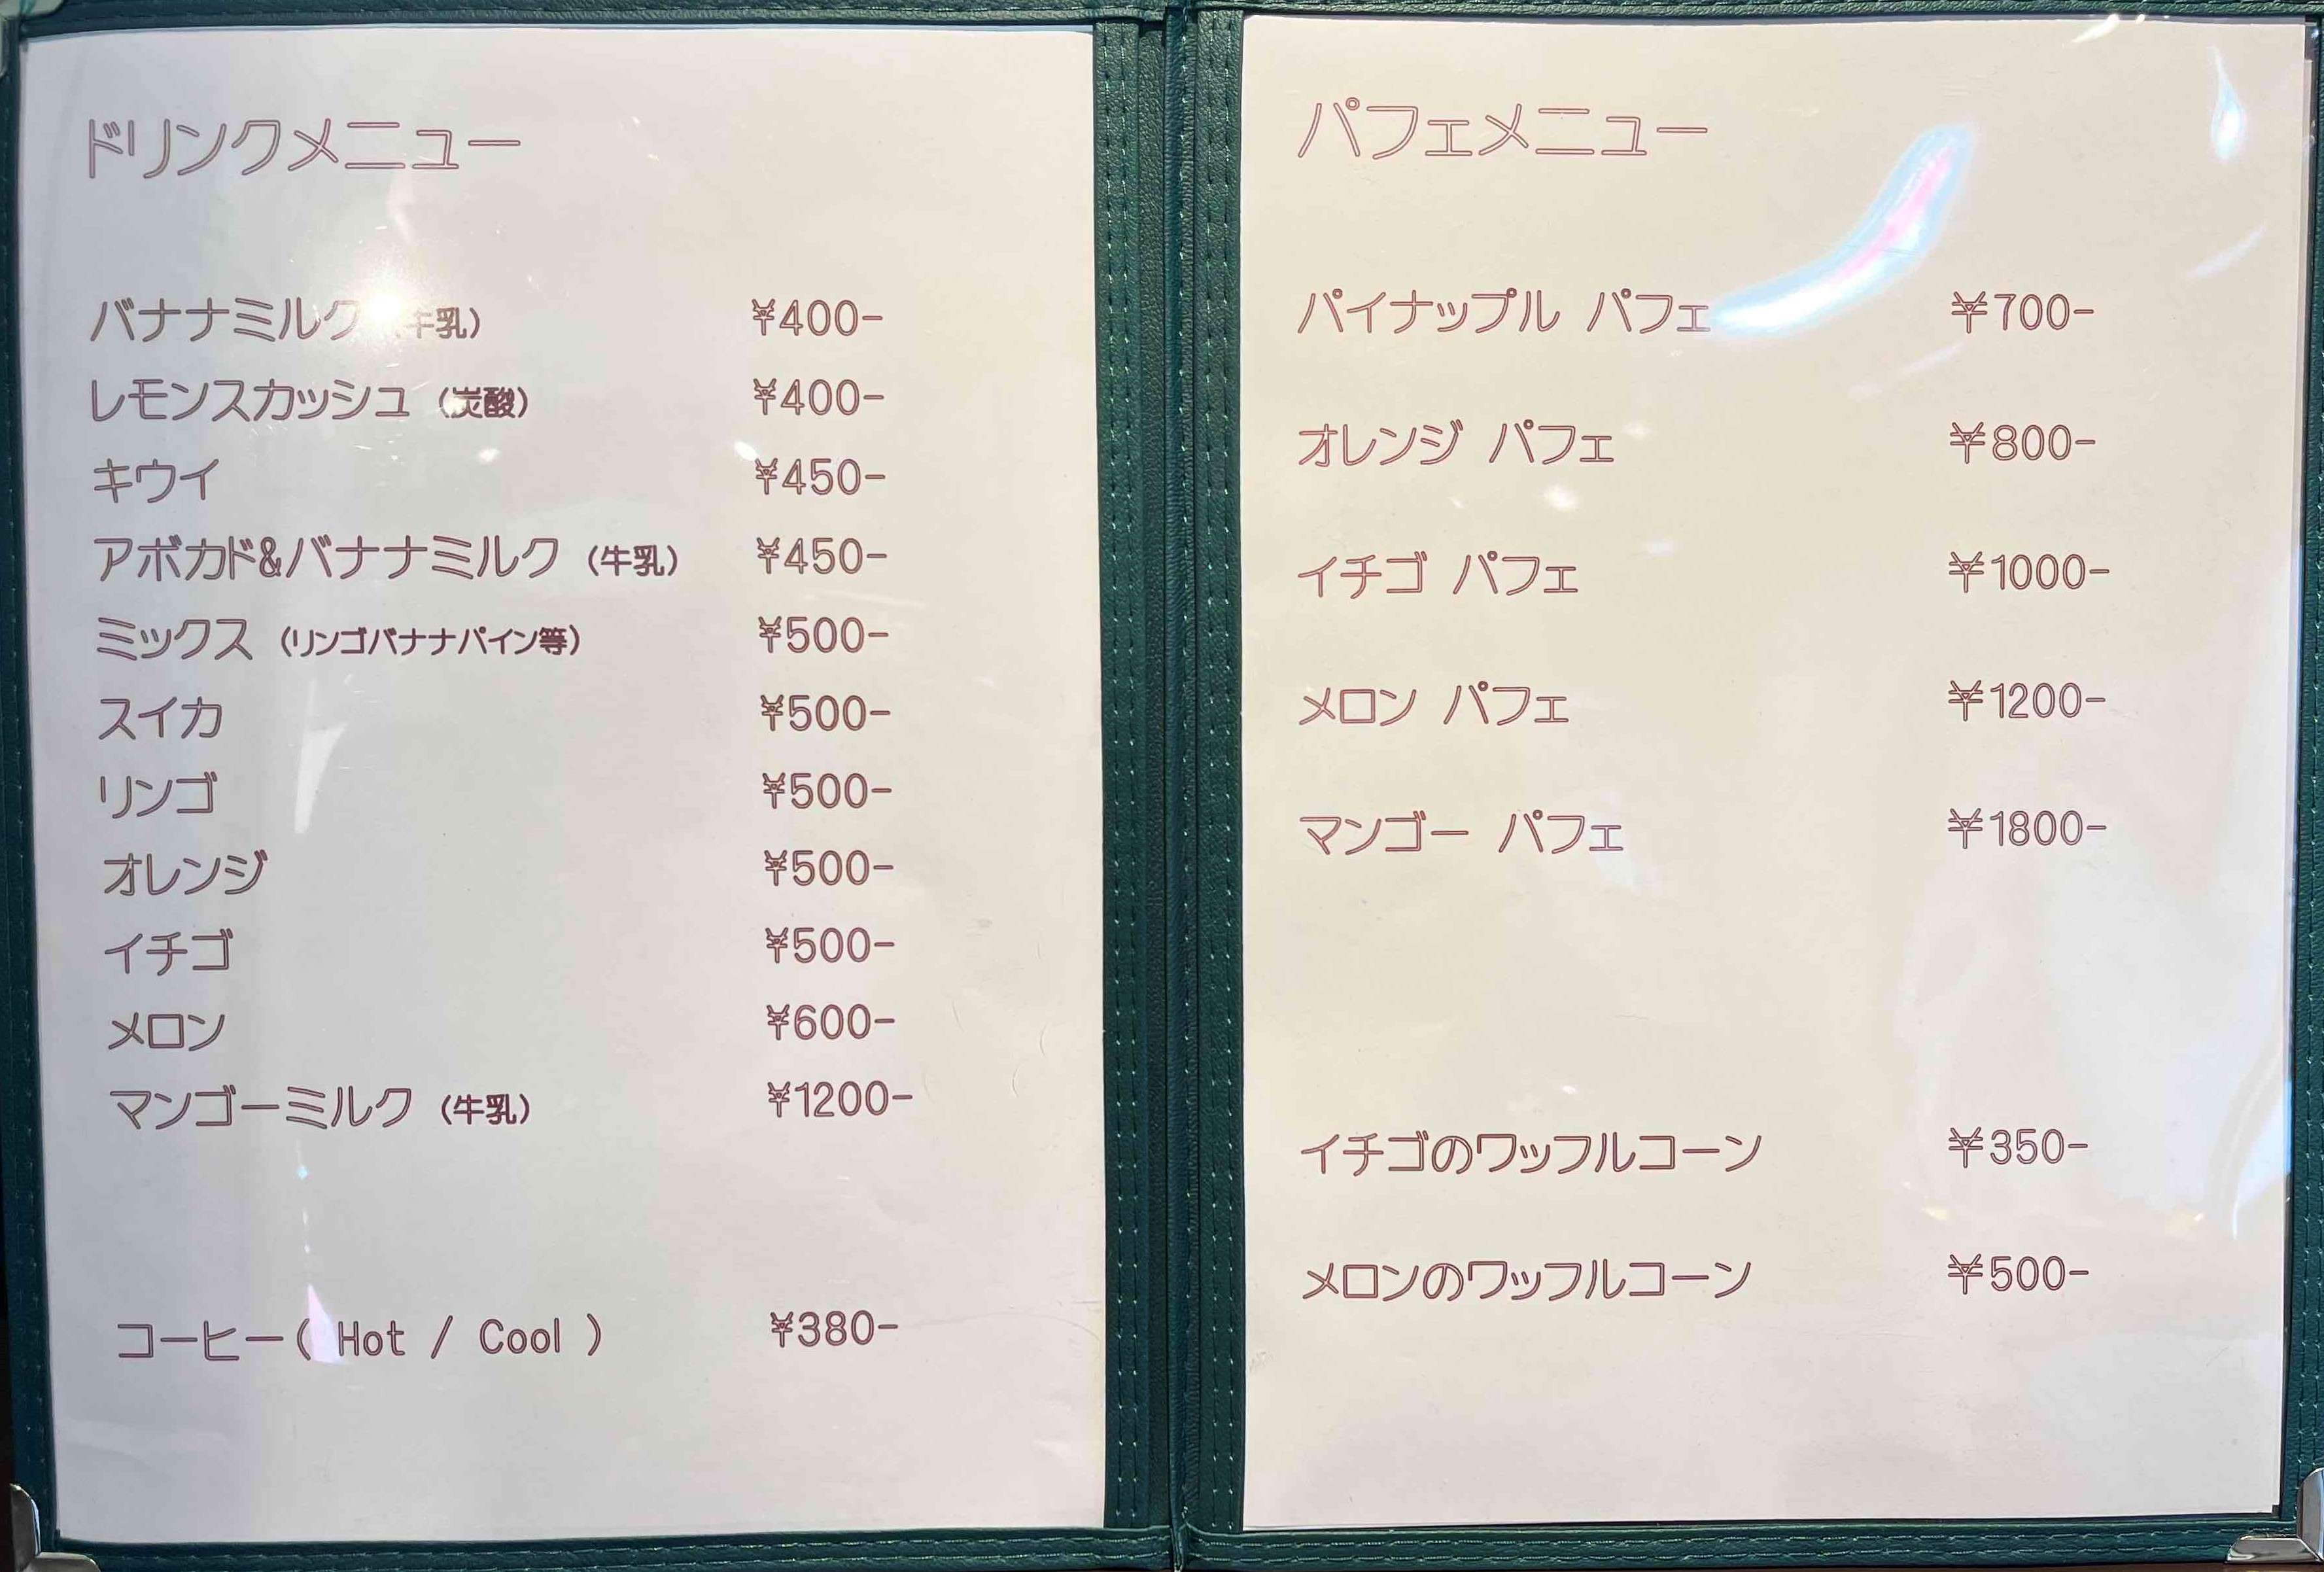 ドリンクメニュー
バナナミルク (牛乳) ¥400-
レモンスカッシュ (炭酸) ¥400-
キウイ ¥450-
アボカド&バナナミルク (牛乳) ¥450-
ミックス (リンゴバナナパイン等) ¥500-
スイカ ¥500-
リンゴ ¥500-
オレンジ ¥500-
イチゴ ¥500-
メロン ¥600-
マンゴーミルク (牛乳) ¥1200-
コーヒー( Hot / Cool ) ¥380-
パフェメニュー
パイナップル パフェ ¥700-
オレンジ パフェ ¥800-
イチゴ パフェ ¥1000-
メロン パフェ ¥1200-
マンゴー パフェ ¥1800-
イチゴのワッフルコーン ¥350-
メロンのワッフルコーン ¥500-